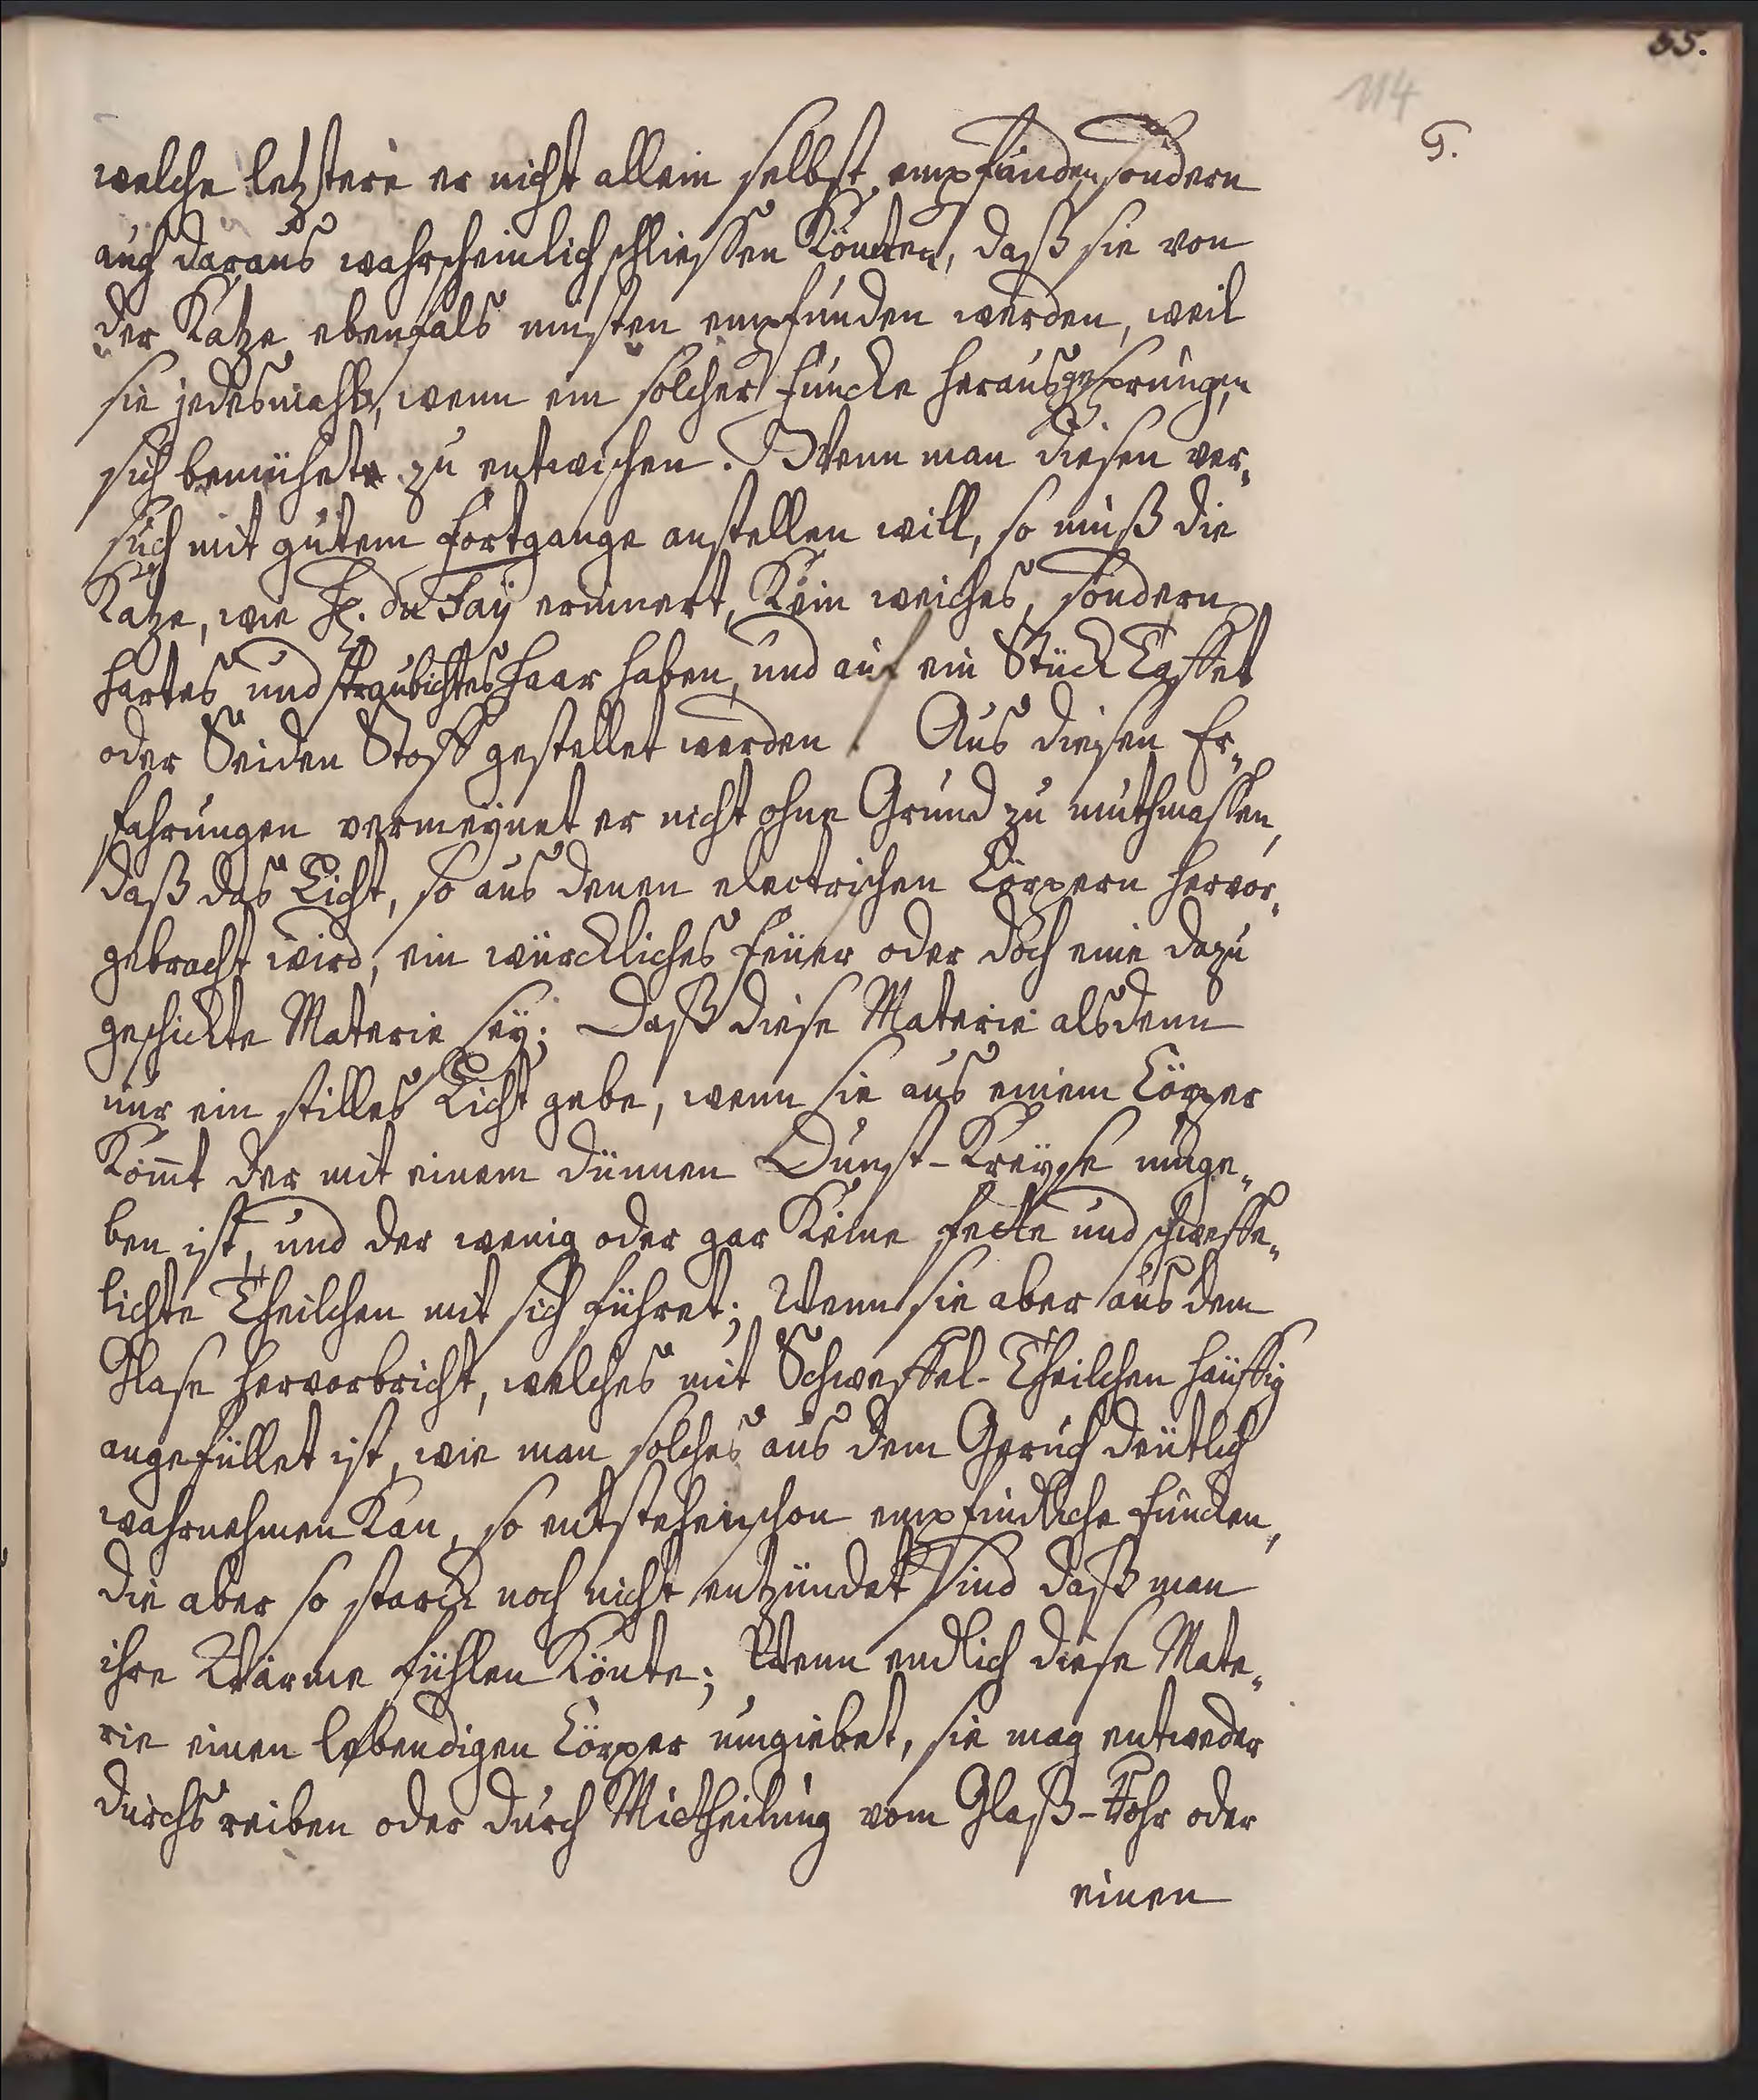 55.
114
G.
welche letztere er nicht allein selbst empfunden, sondern
auch daraus wahrscheinlich schliessen Könten, daß sie von
der Katze ebenfals müsten empfunden werden, weil
sie jedesmahls, wenn ein solcher Funcke herausgesprungen
sich bemühete zu entwischen. Wenn man diesen ver„
such mit gutem Fortgange anstellen will, so muß die
Katze, wie H. du Faÿ erinnert, Kein weiches, sondern
hartes und straubichtes Haar haben, und auf ein Stück Taffet
oder Seiden Stoff gestellet werden. Aus diesen Er„
fahrungen vermeynet er nicht ohne Grund zu muthmassen,
daß das Licht, so aus denen electrischen Cörpern hervor„
gebracht wird, ein würckliches Feuer oder doch eine dazu
geschickte Materie seÿ; Daß diese Materie alsdenn
nur ein stilles Licht gebe, wenn sie aus einem Cörper
Kom̄t der mit einem dünnen Dunst-Kreyse umge„
ben ist, und der wenig oder gar Keine fette und schweffe„
lichte Theilchen mit sich führet; Wenn sie aber aus dem
Glase hervorbricht, welches mit Schweffel-Theilchen häuffig
angefüllet ist, wie man solches aus dem Geruch deutlich
wahrnehmen Kan, so entstehen schon empfindliche Funcken,
die aber so starck noch nicht entzündet sind daß man
ihre Wärme fühlen Könte; Wenn endlich diese Mate„
rie einen lebendigen Cörper umgiebet, sie mag entweder
durchs reiben oder durch Mittheilung vom Glaß-Rohr oder
einen